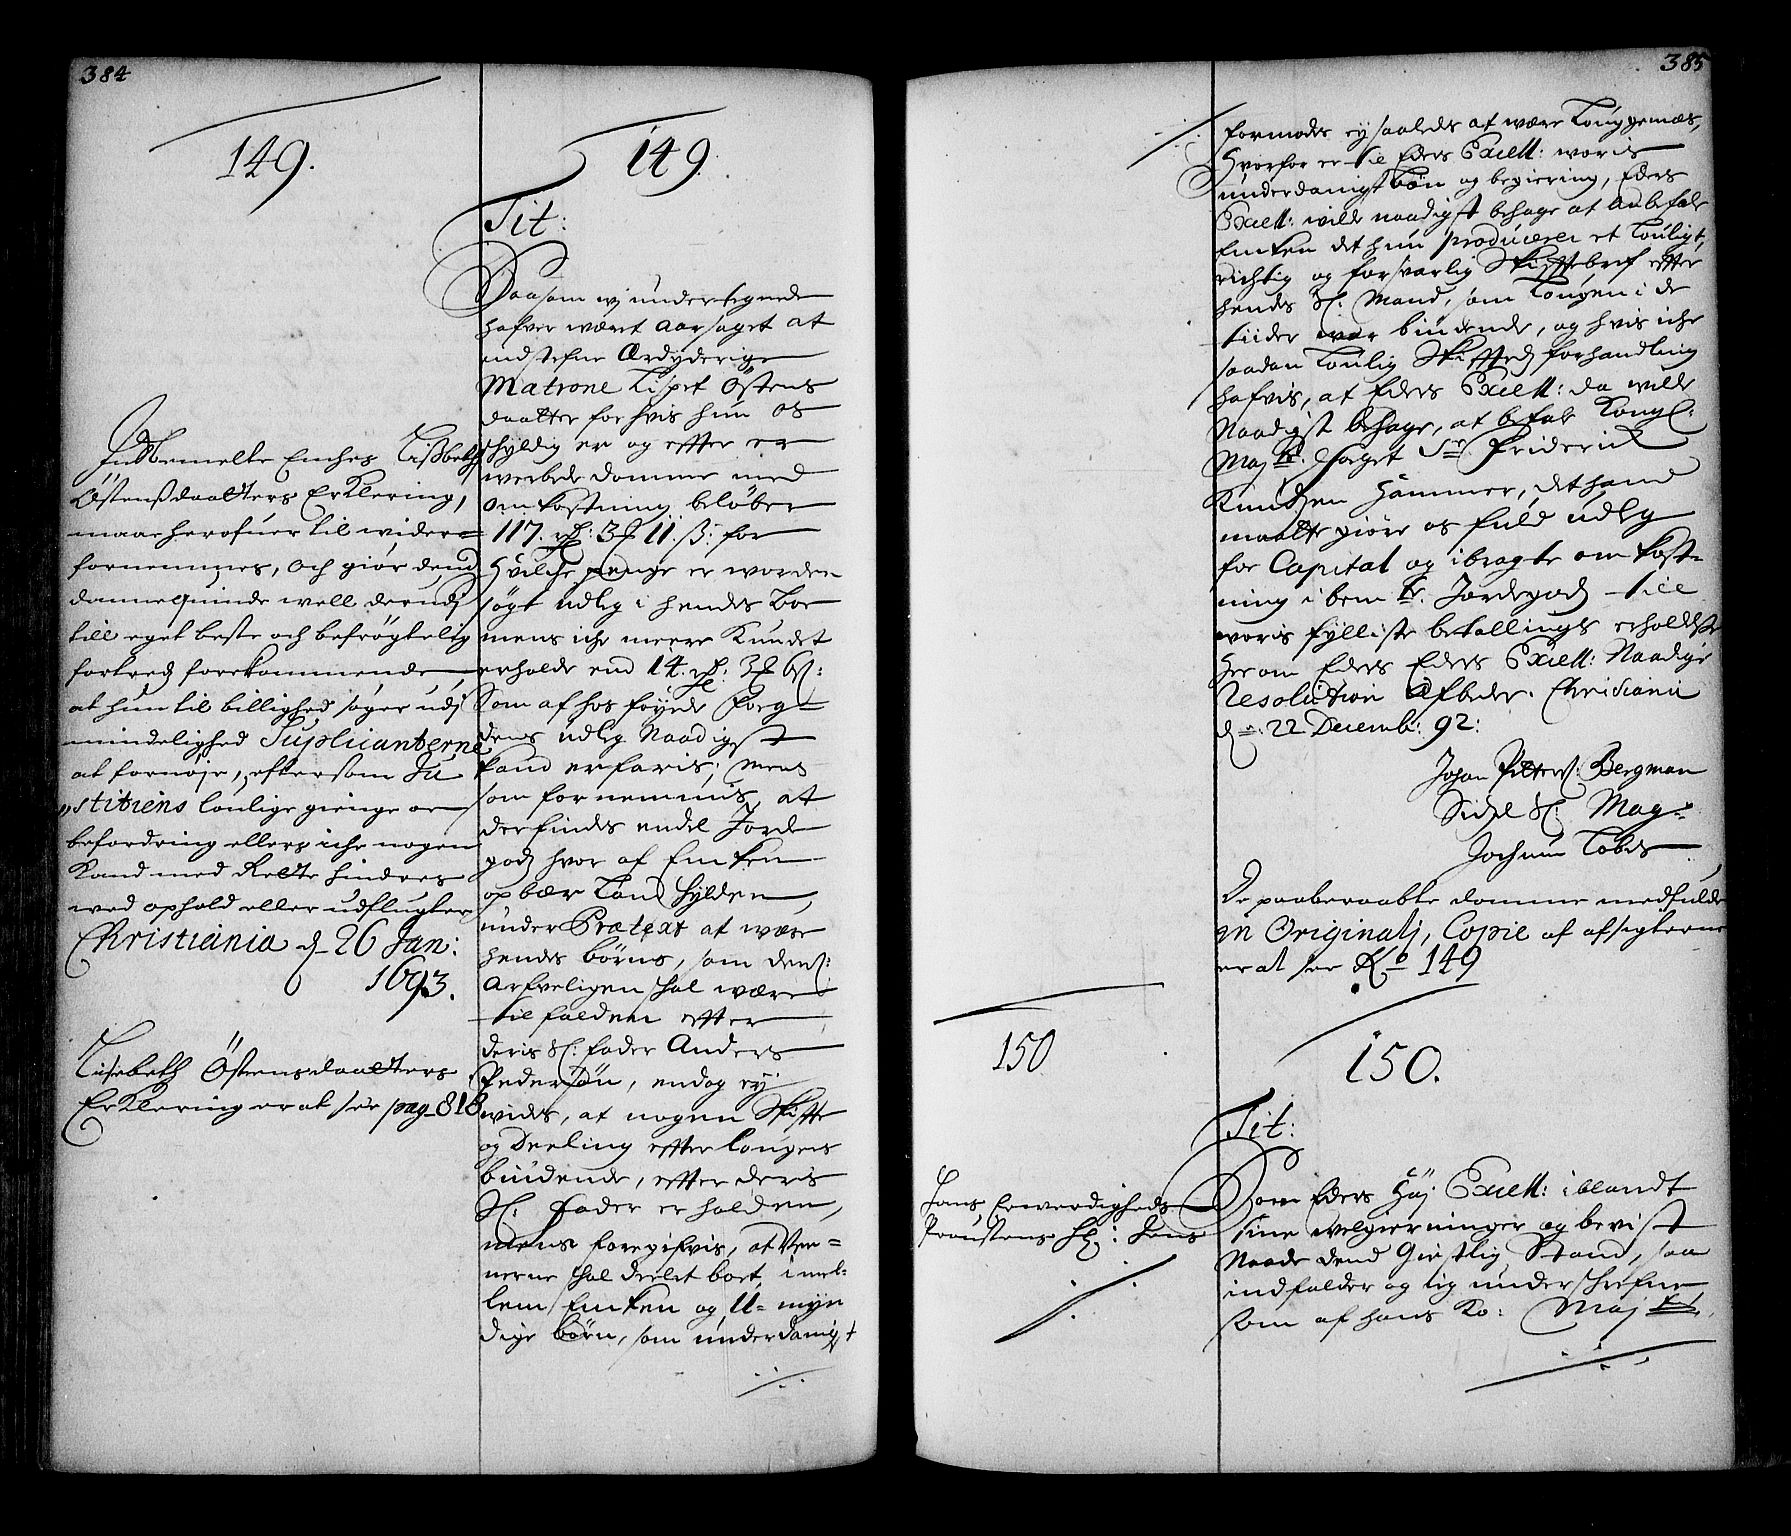 384
149.
Indbemelte Enches Lisbeth
Østensdaatters Erklering,
maae herofuer til widere
fornemmes, och giør dend
dannequinde well derudj
till eget beste och befrögtelig
fortred forekommende,
at hun til billighed søger udj
mindelighed Supplicanterne
at fornøje, eftersom Ju
stitiens loulige gienge oc
befordring ellers iche nogen
Kand med Rette hindres
med ophold eller udflugter
Christiania d 26 Jan:
1693.
Lisebeth Östensdaatters
Erklering er at see pag 818
149
Tit:
Saasom wj undertegnede
hafver wæret aarsaget at
indstefne Ærdyderige
Matrone Lisbet Østens
daatter for hvis hun os
schyldig er og effter er
werbede domme med
omkostning beløber
117. rd: 3 11. ß: for
Hvilche penge er worden
søgt udleg i hendes Boe
mens iche meere Kundet
erholde end 14. rd: 3
Som af hos føyede Foeg
dens udleg Naadigst
kand erfaris; Mens
som fornemmis, at
der findes endel Jorde
gods hvor af Encken
opbær Landschylden,
under Prætext at wære
hendes börns, som dens:
Arfveligen schal wære
tilfalden effter
deris Sl: fader Anders
Pedersøn, endog ey
wides, at nogen Skiffte
og Deeling effter lougens
biudende, effter deris
Sl: Fader er holden,
mens foregifvis, at Ven=
nerne schal deelet boet imel-
lem Encken og U= myn
dige börn, som underdanigst
385
formodes ey saaleds at være Louggemæs,
Hvorfor er til Eders Excell: woris
underdanigst bön og begiering, Eders
Excell: wille naadigst behage at anbefale
Encken det hun producerer et louligt,
richtig og forsvarlig Skifftebref effter
hendes Sl: Mand, som Lougen i de
tiider war biudende, og hvis iche
saadan loulig Skifftes forhandling
hafvis, at Eders Excell: da wille
Naadigst behage, at befale Kongl:
May ts. Foget Sr Friderick
Knudsen Hammer, det hand
maatte giøre os fuld udleg
for Capital og ibragte omkost-
ning i bem te. Jordegods till
woris fylliste betallings erholdelse
Herom Eders Eders Excell: Naadige
Resolution Afbedes. Christiania
d: 22 Decemb: 92:
Johan Pitters: Bergman
Sidsel Sl: Mag-
Jochum Lobes
De paaberaabte domme medfulde
in Originalj, Copie af afsigterne
er at see No 149
150
Hans Erwerdigheds
Proustens H: Hans
150.
Tit:
Som Eders Høj Excell: iblandt
sine welgierninger og bevist
Naade dend Giestlig Stand, saa
indfalder og iig underschrefne
som af hans Ko: May ts